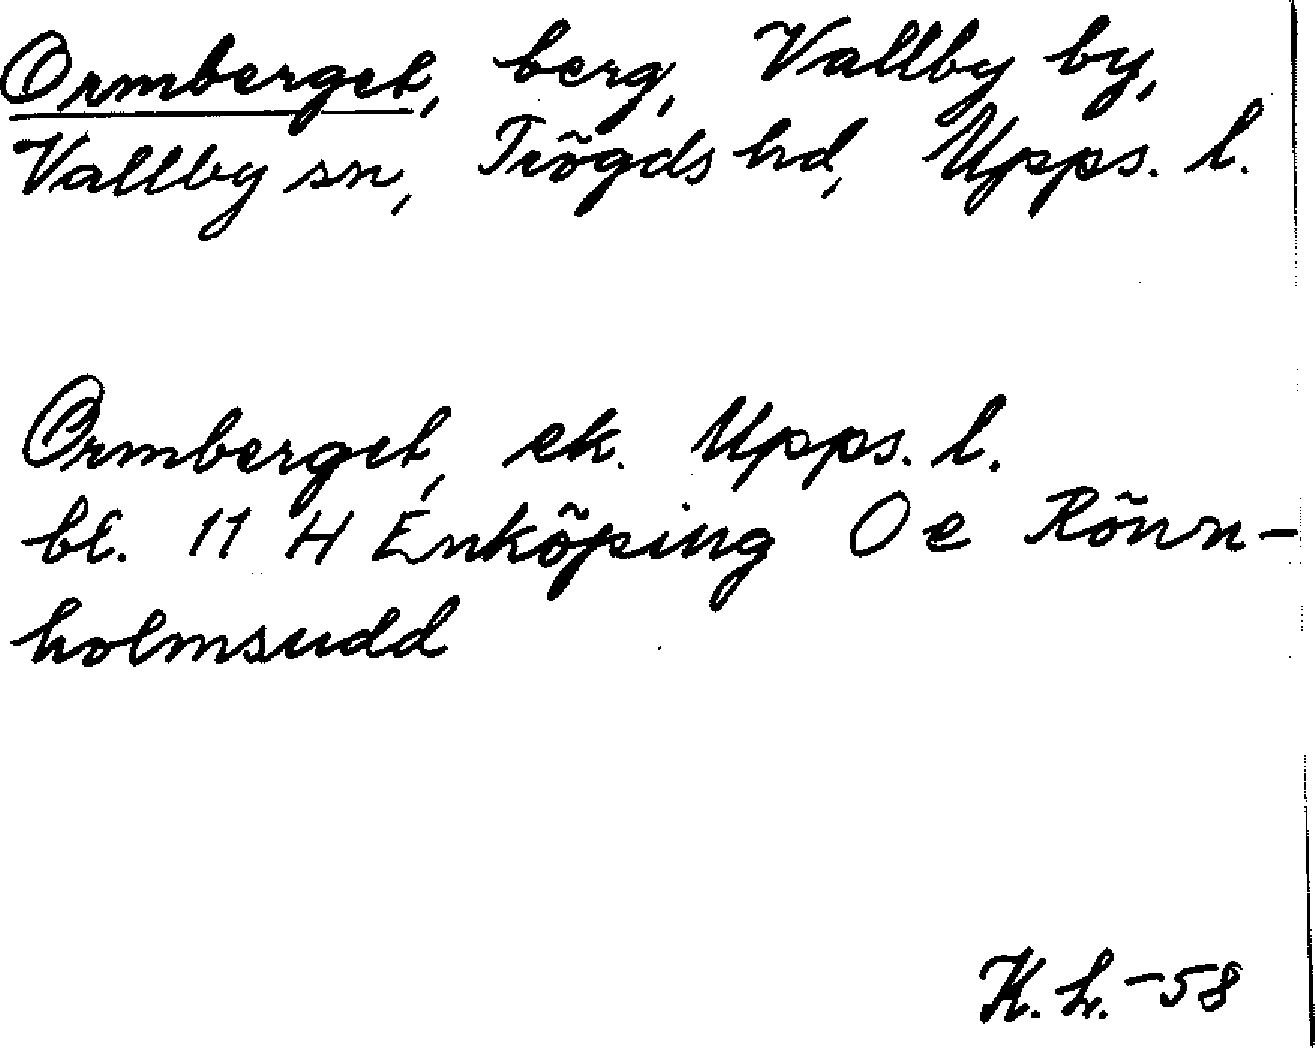 Ormberget, berg, Vallby by,
Vallby sn, Trögds hd, Upps. l.
Ormberget, ek. Upps. l.
bl. 11 H Enköping O e Rönn-
holmsudd
K. L. -58